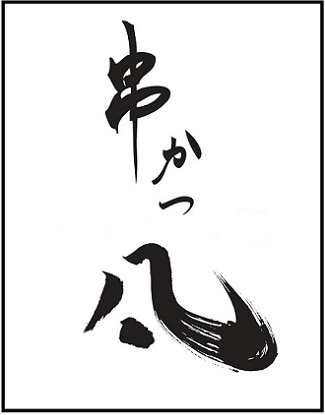 串かつ
凡